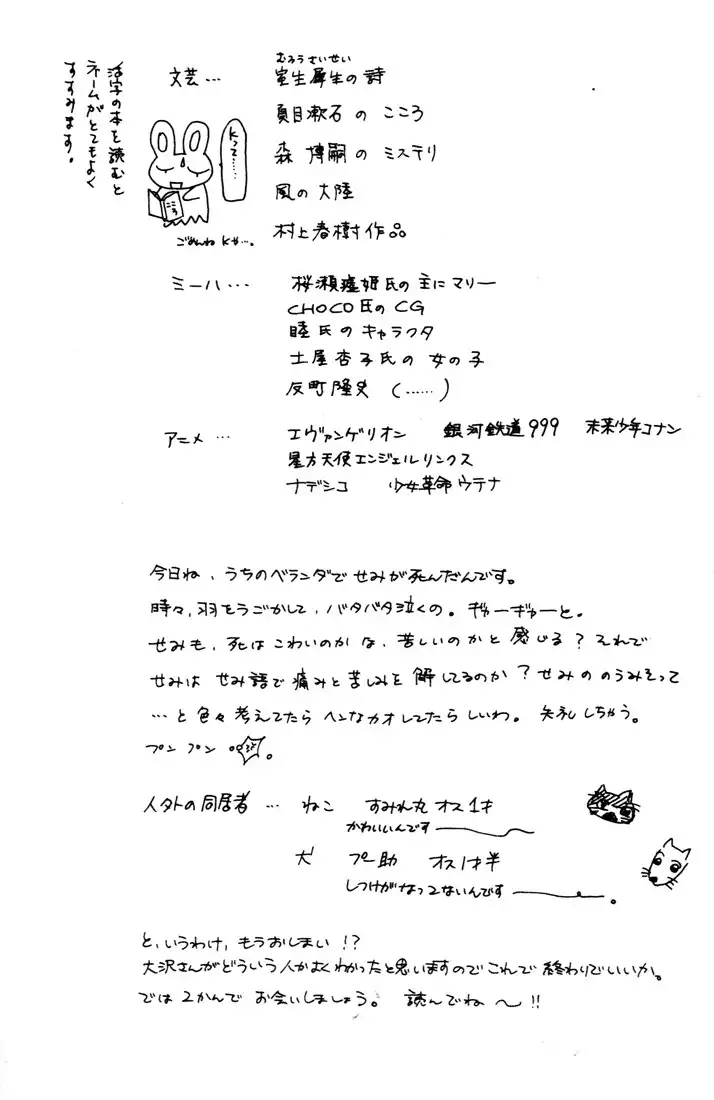 活字の本を読むと
ネームがとてもよく
すすみます。
文芸…
むろうさいせい
室生犀生の詩
夏目漱石の こころ
森 博嗣の ミステリ
風の大陸
村上春樹作品
Kって……。
こころ
ごめんねKや…。
ミーハ…
桜瀬琥姫氏の主にマリー
CHOCO氏のCG
睦氏のキャラクタ
土屋杏子氏の女の子
反町隆史 (……)
アニメ …
エヴァンゲリオン 銀河鉄道999 未来少年コナン
星方天使エンジェルリンクス
ナデシコ 少女革命ウテナ
今日ね、うちのベランダでせみが死んだんです。
時々、羽をうごかして、バタバタ泣くの。ギャーギャーと。
せみも、死はこわいのかな、苦しいのかと感じる?それで
せみは せみ語で痛みと苦しみを解してるのか?せみののうみそって
…と色々考えてたらヘンなカオしてたらしいわ。失礼しちゃう。
プン プン 。
人外の同居者 … ねこ すみれ丸 オス1才
かわいいんです
犬 プー助 オス1才半
しつけがなってないんです 。
と、いうわけ、もうおしまい!?
大沢さんがどういう人かよくわかったと思いますのでこれで終わりでいいか。
では2かんでお会いしましょう。 読んでね〜!!